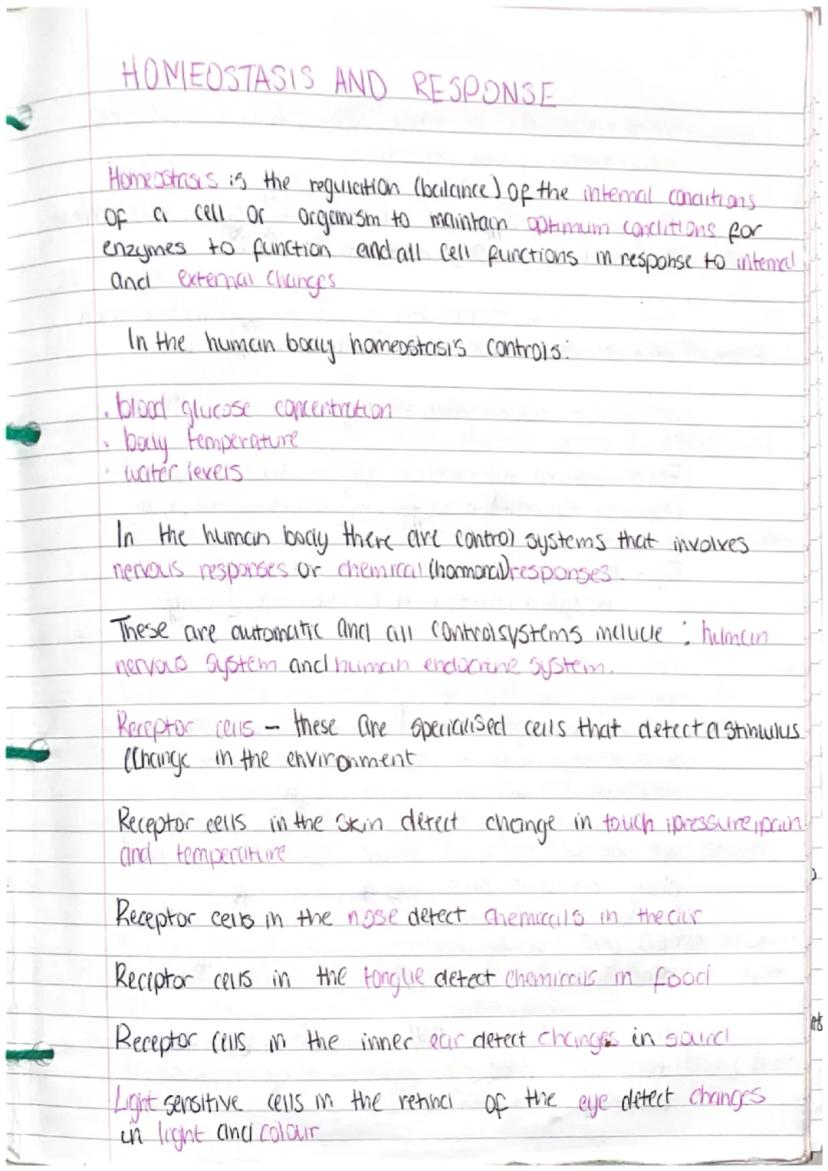 HOMEOSTASIS AND RESPONSE
Homeostasis is the regulation (balance) of the internal conditions
of a cell or organism to maintain optimum conditions for
enzymes to function and all cell functions in response to internal
and external changes
In the human body homeostasis controls:
. blood glucose concentration
. body temperature
. water levels
In the human body there are control systems that involves
nervous responses or chemical (hormonal) responses.
These are automatic and all control systems include : human
nervous system and human endocrine system.
Receptor cells - these are specialised cells that detect a stimulus
(Change in the environment
Receptor cells in the skin detect change in touch, pressure, pain
and temperature
Receptor cells in the nose detect chemicals in the air
Receptor cells in the tongue detect chemicals in food
Receptor cells in the inner ear detect changes in sound
Light sensitive cells in the retina of the eye detect changes
in light and colour